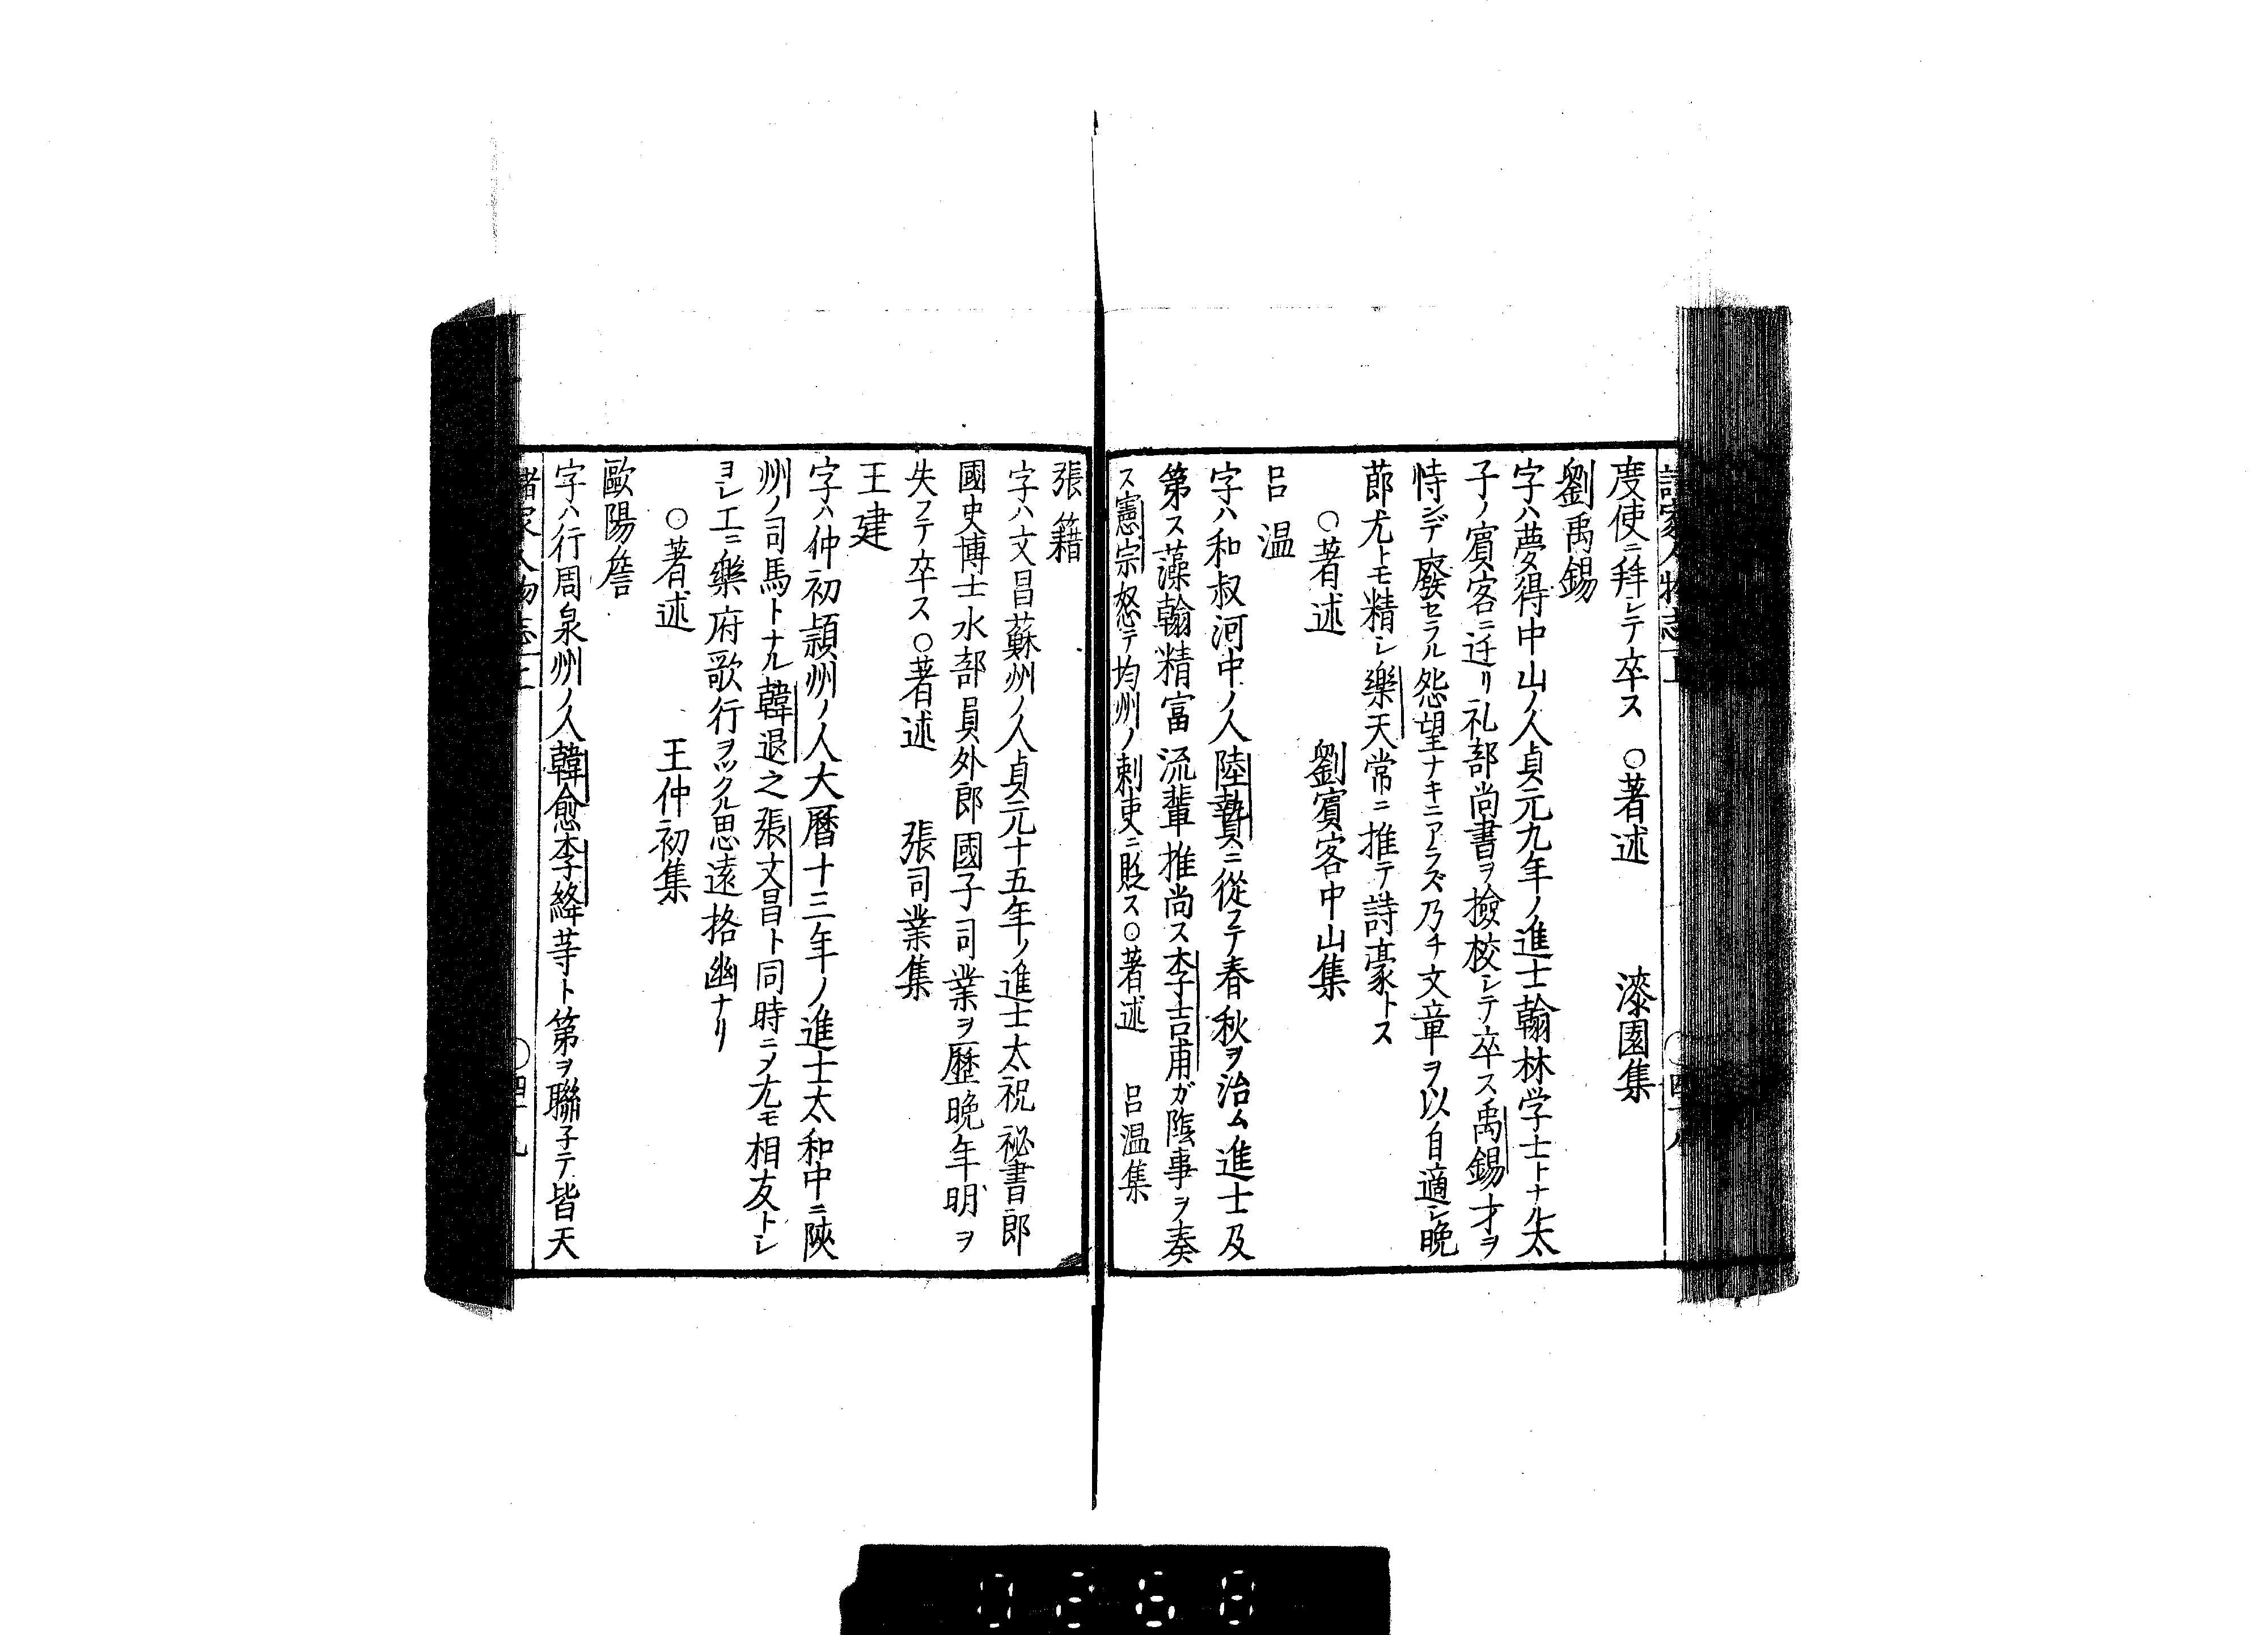 度使ニ拜レテ卒ス　○著述　漆園集
劉禹錫
字ハ夢得中山ノ人貞元九年ノ進士翰林学士トナル太
子ノ賓客ニ迁リ礼部尚書ヲ撿校レテ卒ス禹錫才ヲ
恃ンデ廢セラル怨望ナキニアラズ乃チ文章ヲ以自適シ晩
莭尤トモ精シ樂天常ニ推テ詩豪トス
○著述　劉賓客中山集
呂温
字ハ和叔河中ノ人陸贄ニ從フテ春秋ヲ治ム進士及
第ス藻翰精富流輩推尚ス李吉甫ガ陰事ヲ奏
ス憲宗怒テ均州ノ刺吏ニ貶ス○著述　呂温集
張籍
字ハ文昌蘇州ノ人貞元十五年ノ進士太祝祕書郎
國史博士水部員外郎國子司業ヲ歷晩年明ヲ
失フテ卒ス○著述　張司業集
王建
字ハ仲初潁州ノ人大曆十三年ノ進士太和中ニ陝
州ノ司馬トナル韓退之張文昌ト同時ニメ尢モ相友トシ
ヨシ工ニ樂府歌行ヲツクル思遠格幽ナリ
○著述　王仲初集
歐陽詹
字ハ行周泉州ノ人韓愈李絳䓁ト第ヲ聯子テ皆天